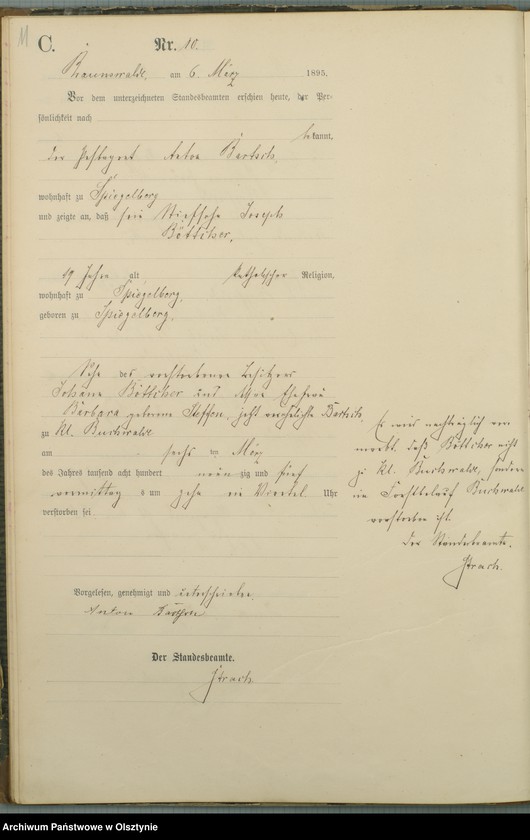 11
C.
Nr. 10.
Braunswalde, am 6. März 1895.
Vor dem unterzeichneten Standesbeamten erschien heute, der Per-
sönlichkeit nach
bekannt,
der Anton Bartsch,
wohnhaft zu Spiegelberg
und zeigte an, daß sein Stiefsohn Joseph
Bötticher,
19 Jahre alt, katholischer Religion,
wohnhaft zu Spiegelberg,
geboren zu Spiegelberg,
Sohn des verstorbenen Besitzers
Johann Bötticher und dessen Ehefrau
Barbara geborene Steffen, jetzt verehelichte Bartsch
zu Kl. Buchwalde
am sechs ten März
des Jahres tausend acht hundert neun zig und fünf
vormittag s um zehn ein Viertel Uhr
verstorben sei
Vorgelesen, genehmigt und unterschrieben.
Anton Bartsch
Der Standesbeamte.
Strach.
Es wird nachträglich ver-
merkt, daß Bötticher nicht
zu Kl. Buchwalde, sondern
im Forstbelauf Buchwald
verstorben ist.
Der Standesbeamte.
Strach.
Archiwum Państwowe w Olsztynie